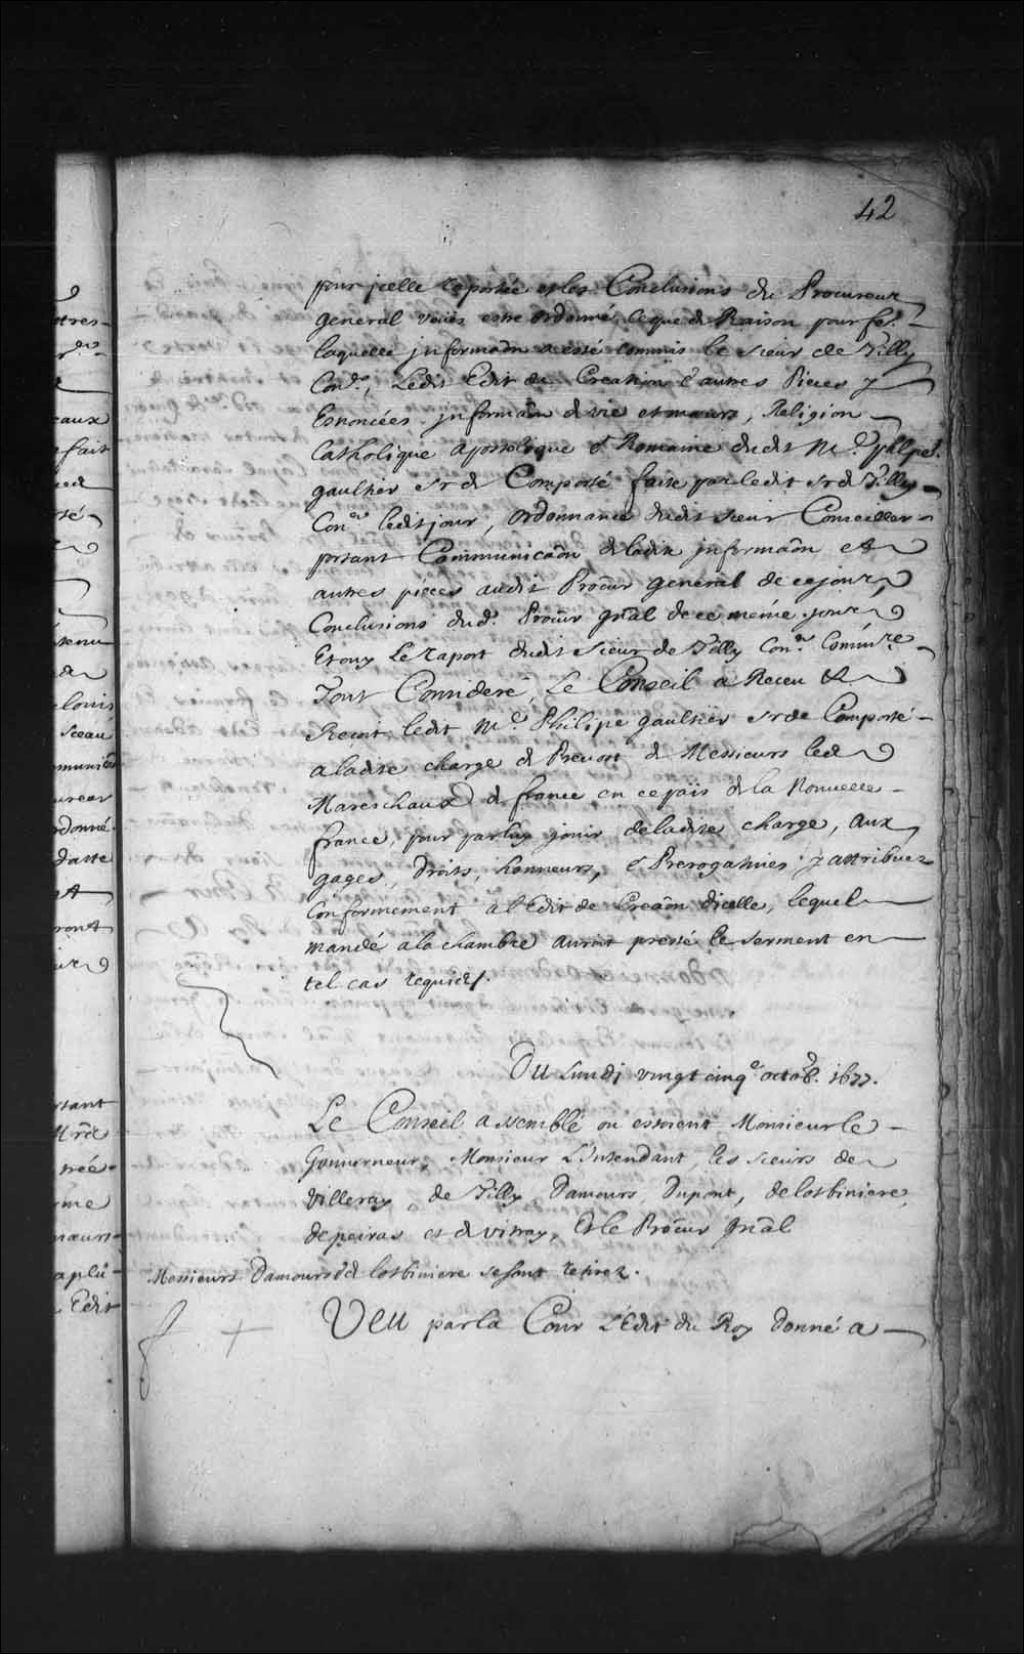 42
pour jcelle raportée et les Conclusions du Procureur
general veuës estre ordonné ce que de Raison pour fe.
laquelle jnformaôn a esté commis le sieur de Tilly
Con.er, Ledit Edit de Creation & autres Pieces y
Enoncées jnformaôn de vie et mœurs, Religion
Catholique apostolique & Romaine dudit M.e phlipe
gaultier sr de Comporté faite par ledit sr de Tilly
Con.er ledit jour, ordonnance dudit sieur Conseiller
portant Communicaôn de ladite jnformaôn et
autres pieces audit Procûr general de ce jour,
Conclusions dud. Procûr gñal de ce méme jour
Et ouy Le raport dudit sieur de Tilly Con.er Comm.re
Tout Consideré, Le Conseil a Receu &
Reçoit ledit M.e Philipe gaultier sr de Comporté
a ladite charge de Prevost de Messieurs les
Mareschaux de france en ce païs de la Nouvelle
france, pour par luy jouir de ladite charge, aux
gages, droits, honneurs, & Prerogatives y attribuez
Conformement a l'Edit de Creaôn dicelle, lequel
mandé a la chambre auroit presté le serment en
tel cas requis.
Du Lundi vingt cinq.e octob. 1677.
Le Conseil assemblé ou estoient Monsieur le
Gouverneur, Monsieur L'intendant, les sieurs de
Villeray de Tilly Damours, Dupont, de lotbiniere
depeiras et de vitray, Et le Procûr gñal
Messieurs Damours & de lotbiniere se sont retirez.
Veu par la Cour L'Edit du Roy donné a